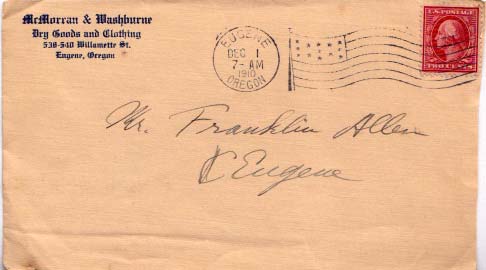 McMorran & Washburne
Dry Goods and Clothing
538-540 Willamette St.
Eugene, Oregon
EUGENE
DEC 1
7-AM
1910
OREGON
U.S. POSTAGE
TWO CENTS
Mr. Franklin Allen
Eugene